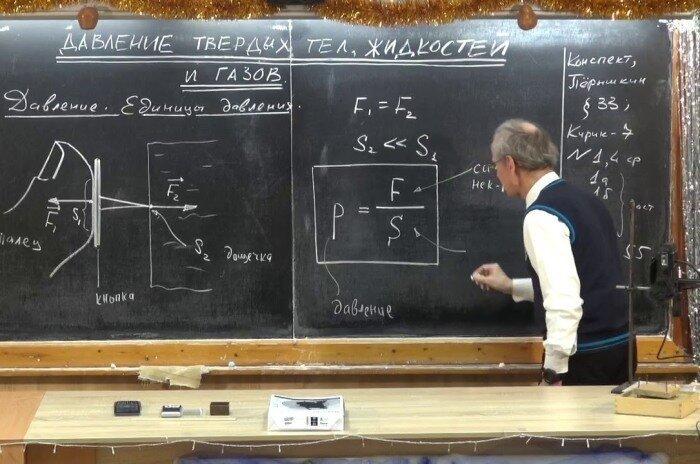 ДАВЛЕНИЕ ТВЕРДЫХ ТЕЛ, ЖИДКОСТЕЙ
И ГАЗОВ.
Давление. Единицы давления.
F₁
S₁
палец
кнопка
F₂
S₂
дощечка
F₁ = F₂
S₂ << S₁
p = F/S
давление
Конспект,
Пёрышкин
§ 33,
Кирик-7
N 1,4 ср
1а
1б